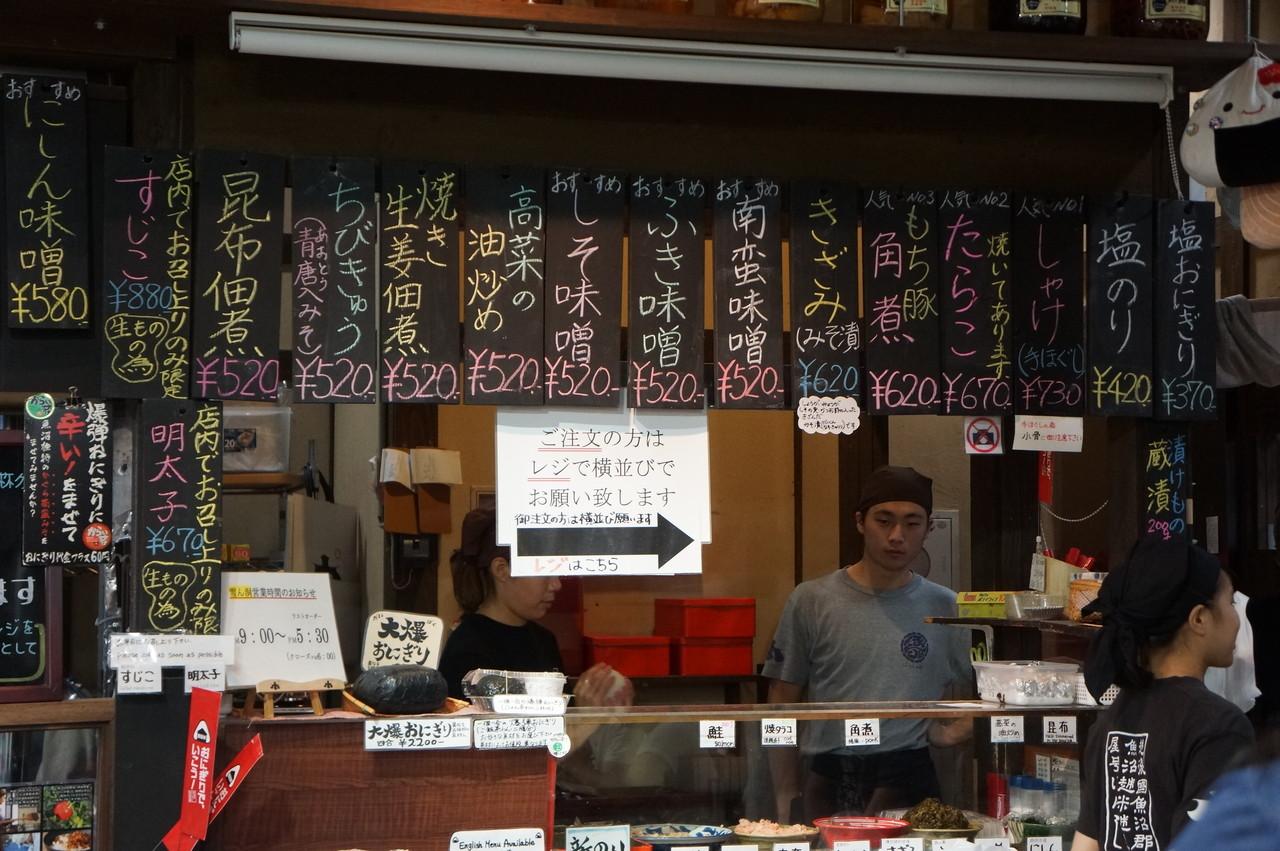 おすすめ
にしん味噌
¥580
店内でお召し上りのみ限定
すじこ
¥880
生もの
の為
昆布佃煮
¥520
ちびきゅう
(青唐へみそ)
¥520-
焼き
生姜佃煮
¥520-
高菜の
油炒め
¥520-
おすすめ
しそ味噌
¥520-
おすすめ
ふき味噌
¥520-
おすすめ
南蛮味噌
¥520-
きざみ
(みそ漬)
¥620
人気No3
もち豚
角煮
¥620-
人気No2
焼いてあります
たらこ
¥670-
人気No.1
しゃけ
(きほぐし)
¥730
塩のり
¥420
塩おにぎり
¥370
爆弾おにぎりに
辛い!をまぜて
おにぎり代金プラス60円
店内でお召し上りのみ限定
明太子
¥670
生もの
の為
ご注文の方は
レジで横並びで
お願い致します
御注文の方は横並び願います
レジはこちら
小骨に御注意下さい
漬けもの
蔵漬
200g
雪ん洞営業時間のお知らせ
ラストオーダー
9:00~PM5:30
(クローズPM6:00)
大爆
おにぎり
すじこ
明太子
おにぎりで
いこう!
大爆おにぎり
四合 ¥2200-
鮭
焼タラコ
角煮
高菜の
油炒め
昆布
English Menu Available
魚沼郡